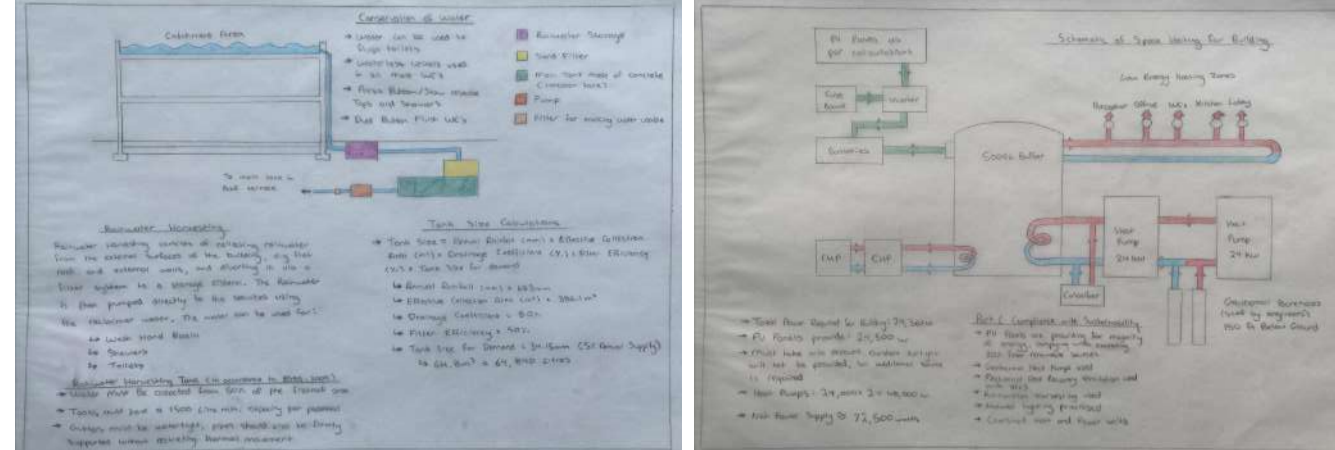 Conservation of Water
Catchment Area
→ Water can be used to
flush toilets
→ Waterless Urinals used
in all male WC's
→ Press Button/Slow release
Taps and Showers
→ Dual Button Flush WC's
Rainwater Storage
Sand Filter
Main Tank made of concrete
Pump
Filter for making water usable
To main tank in
Rainwater Harvesting
Rainwater Harvesting consists of collecting rainwater
from the external surfaces of the building, e.g flat
roof and external walls, and diverting it into a
filter system to a storage system. The Rainwater
is then pumped directly to the services using
the rainwater. The water can be used for:
↳ Wash Hand Basin
↳ Showers
↳ Toilets
Rainwater Harvesting Tank (in accordance to
→ Water must be collected from 50% of
→ Tanks must have a 1500 litre min. capacity per
→ Gutters must be watertight, pipes should also be firmly
supported without restricting thermal movement
Tank Size Calculations
→ Tank Size = Annual Rainfall (mm) x Effective Collection
Area (m²) x Drainage Coefficient (%) x Filter Efficiency
(%) x Tank Size for demand
↳ Annual Rainfall (mm) =
↳ Effective Collection Area (m²) =
↳ Drainage Coefficient =
↳ Filter Efficiency =
↳ Tank Size for Demand = (5% Annual Supply)
Schematic of Space Heating for Building
PV Panels as
per calculations
Fuse
Board
Inverter
Batteries
5000L Buffer
Low Energy Heating Zones
Reception Office WC's Kitchen Lobby
CHP
CHP
Heat
Pump
24 kW
Heat
Pump
24 kW
Geothermal Boreholes
(sized by engineers)
Below Ground
→ Total Power Required for Building:
→ PV Panels provide: 24,500 w
→ Must take into account constant sunlight
will not be provided, so additional source
is required
→ Heat Pumps: 24,000 x 2 = 48,000 w
→ Total Power Supply is 72,500 watts
Part L Compliance with Sustainability
→ PV Panels are providing for majority
of energy, complying with
from renewable sources
→ Geothermal Heat Pumps used
→ Mechanical Heat Recovery Ventilation used
→ Rainwater harvesting used
→ lighting prioritised
→ Combined Heat and Power Units